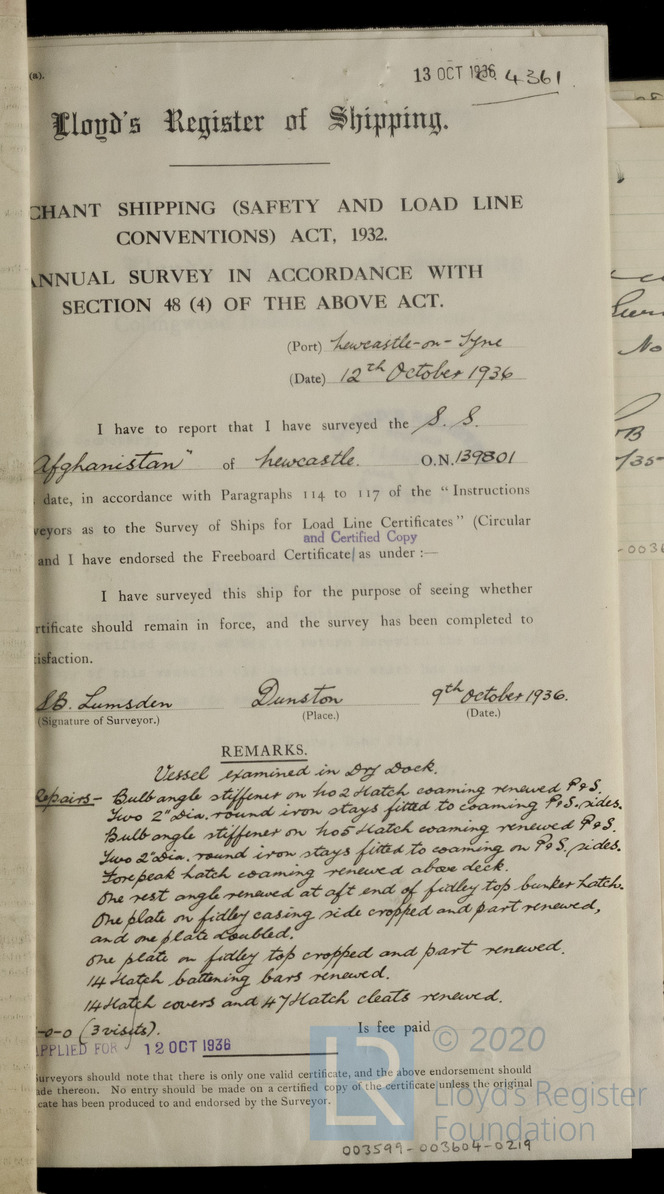 (a).
13 OCT 1936 C. 4361
Lloyd's Register of Shipping.
CHANT SHIPPING (SAFETY AND LOAD LINE
CONVENTIONS) ACT, 1932.
ANNUAL SURVEY IN ACCORDANCE WITH
SECTION 48 (4) OF THE ABOVE ACT.
(Port) Newcastle-on-Tyne
(Date) 12th October 1936
I have to report that I have surveyed the S. S.
Afghanistan" of Newcastle. O.N. 139801
date, in accordance with Paragraphs 114 to 117 of the "Instructions
veyors as to the Survey of Ships for Load Line Certificates" (Circular
and Certified Copy
and I have endorsed the Freeboard Certificate/ as under :—
I have surveyed this ship for the purpose of seeing whether
rtificate should remain in force, and the survey has been completed to
isfaction.
SB. Lumsden Dunston 9th October 1936.
(Signature of Surveyor.) (Place.) (Date.)
REMARKS.
Vessel examined in Dry Dock.
Repairs- Bulb angle stiffener on No 2 Hatch coaming renewed P&S.
Two 2" Dia. round iron stays fitted to coaming P&S. sides.
Bulb angle stiffener on No 5 Hatch coaming renewed P&S.
Two 2" Dia. round iron stays fitted to coaming on P&S. sides.
Forepeak hatch coaming renewed above deck.
One rest angle renewed at aft end of fidley top bunker hatch.
One plate on fidley casing side cropped and part renewed,
and one plate doubled.
One plate on fidley top cropped and part renewed.
14 Hatch battening bars renewed.
14 Hatch covers and 47 Hatch cleats renewed.
-0-0 (3 visits). Is fee paid
APPLIED FOR 12 OCT 1936
Surveyors should note that there is only one valid certificate, and the above endorsement should
ade thereon. No entry should be made on a certified copy of the certificate unless the original
cate has been produced to and endorsed by the Surveyor.
LR
© 2020
Lloyd's Register
Foundation
003599-003604-0219
No
/35-
-0036